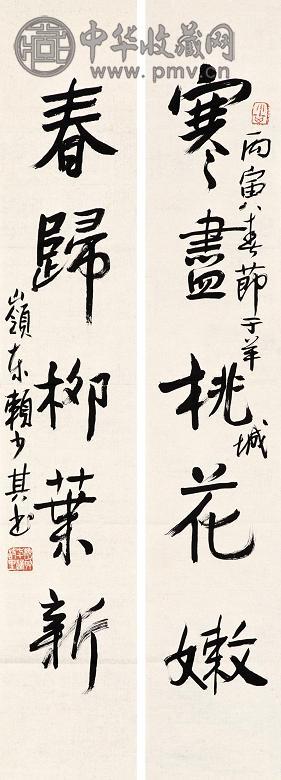 中华收藏网
www.pmv.cn
寒盡桃花嫩
丙寅春節于羊城
春歸柳葉新
嶺东賴少其书